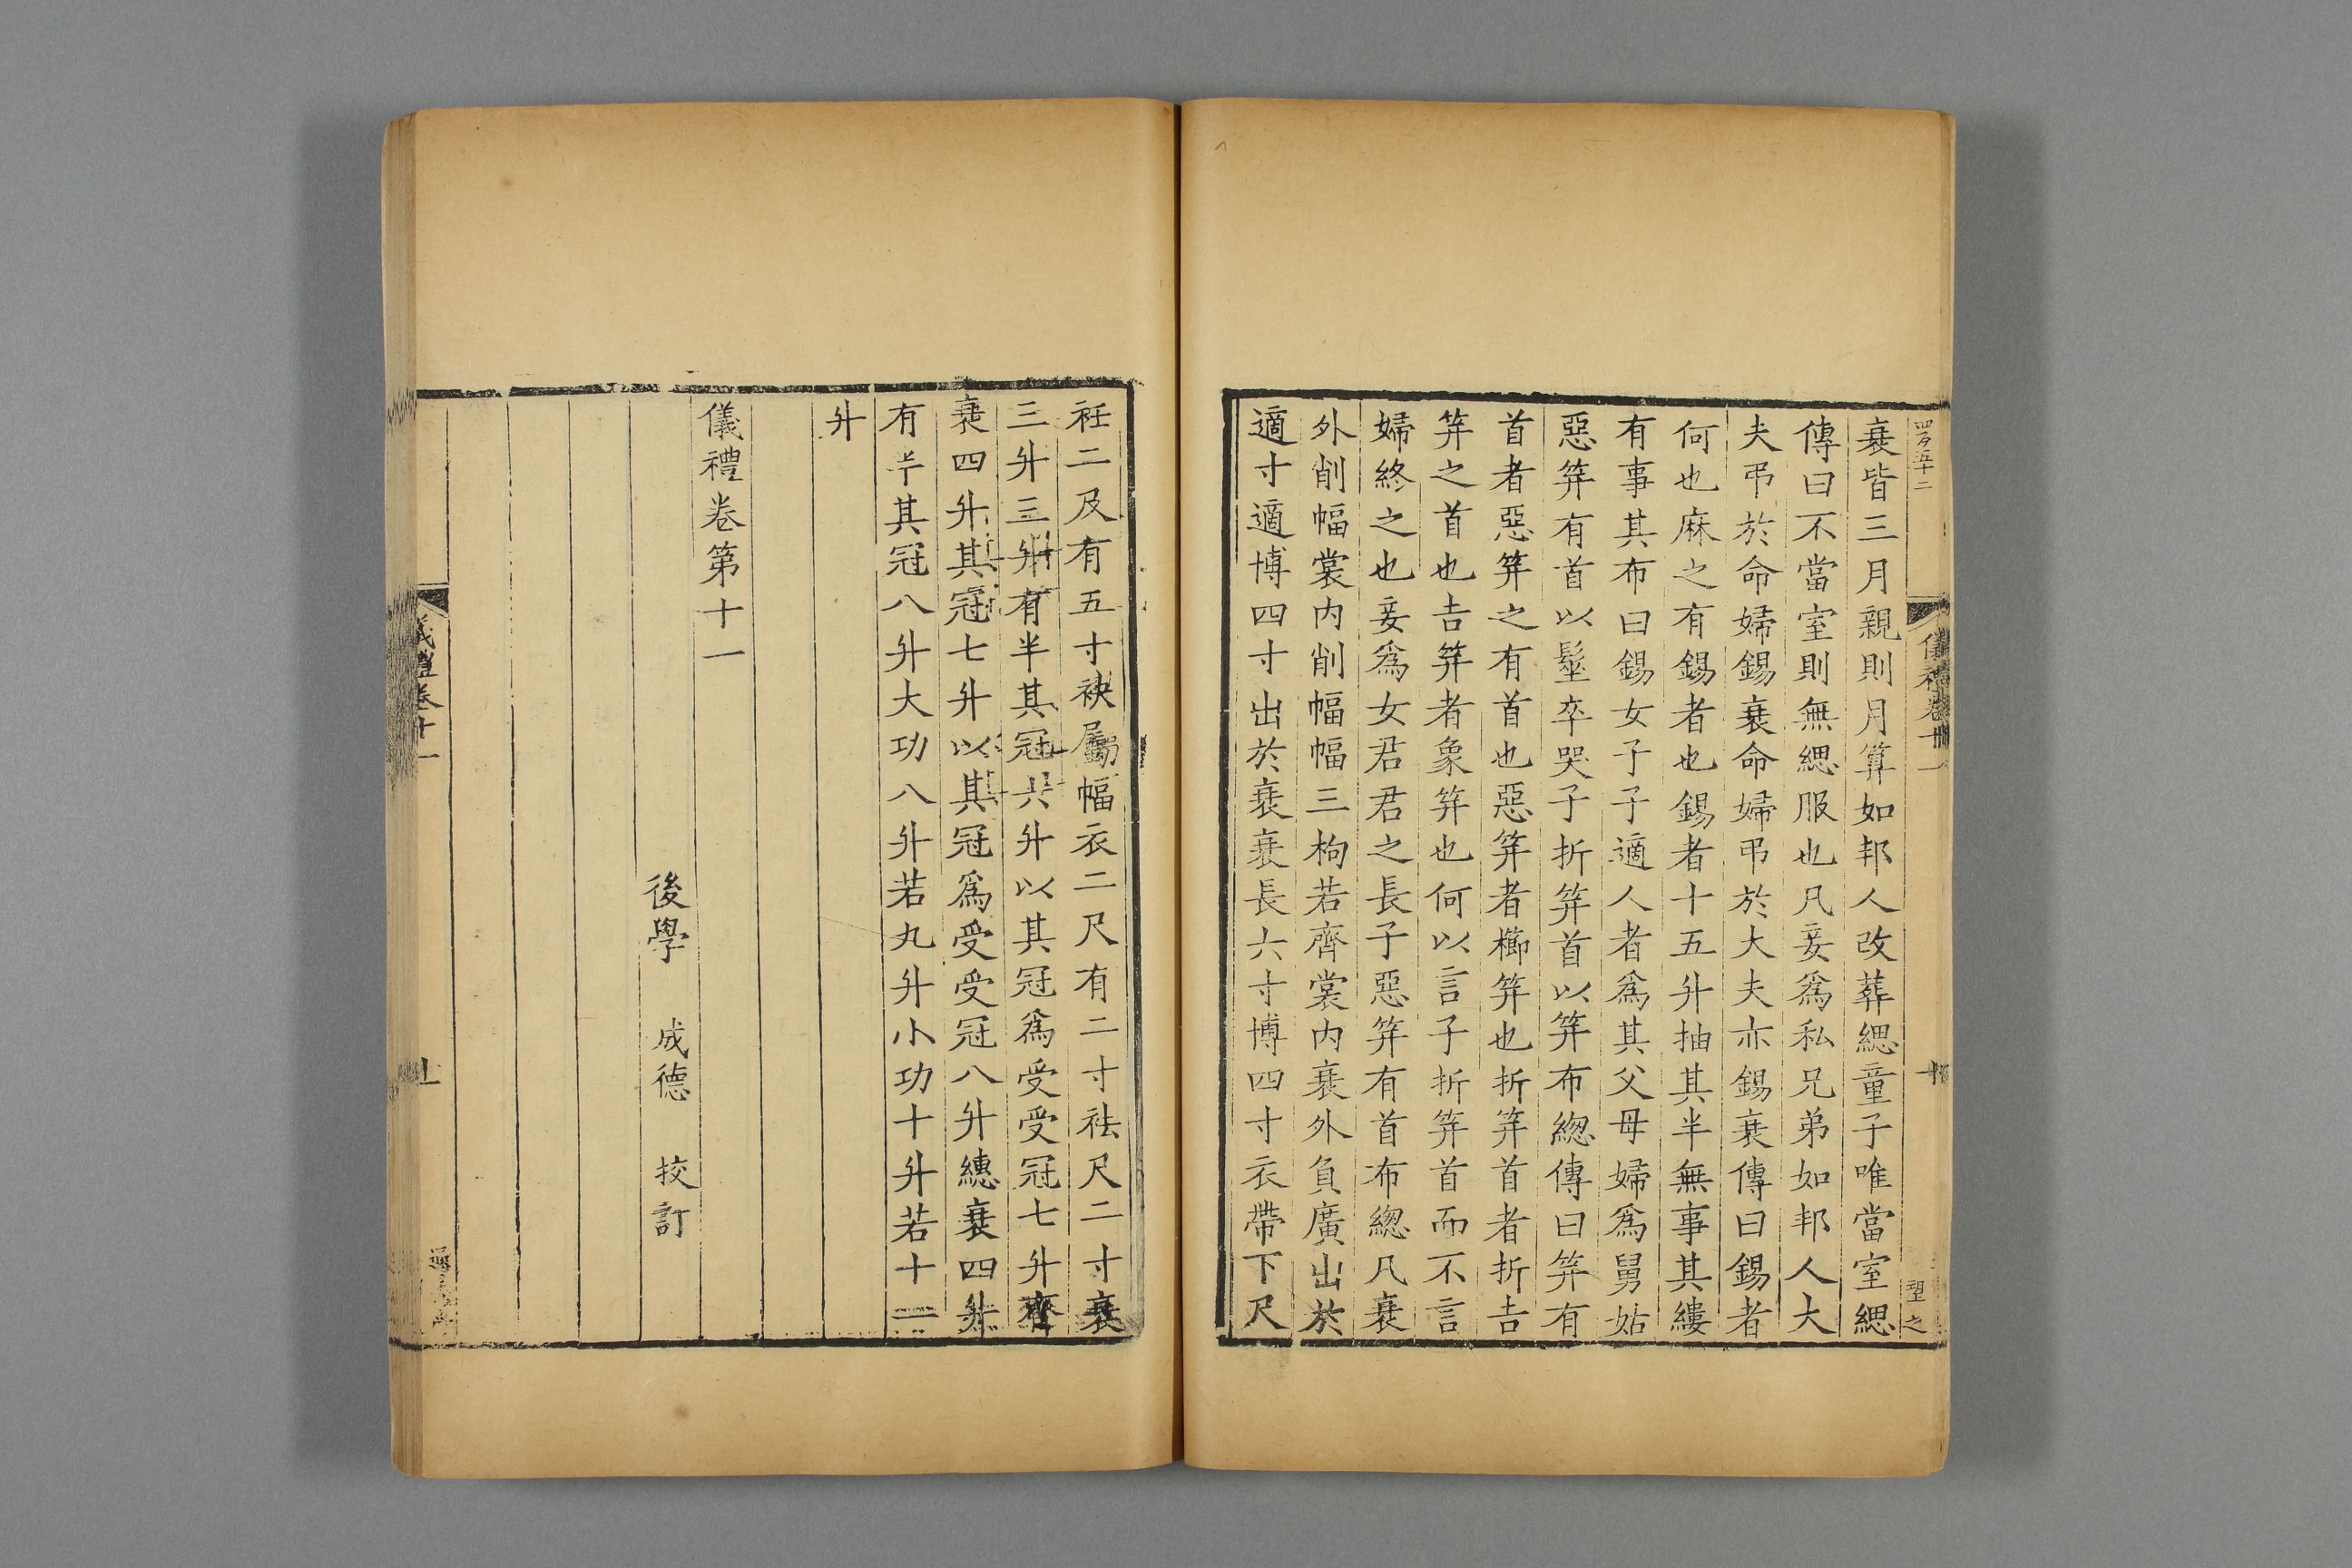 衰皆三月親則月算如邦人改葬緦童子唯當室緦
傳曰不當室則無緦服也凡妾爲私兄弟如邦人大
夫弔於命婦錫衰命婦弔於大夫亦錫衰傳曰錫者
何也麻之有錫者也錫者十五升抽其半無事其縷
有事其布曰錫女子子適人者爲其父母婦爲舅姑
惡笄有首以髽卒哭子折笄首以笄布總傳曰笄有
首者惡笄之有首也惡笄者櫛笄也折笄首者折吉
笄之首也吉笄者象笄也何以言子折笄首而不言
婦終之也妾爲女君君之長子惡笄有首布總凡衰
外削幅裳内削幅幅三袧若齊裳内衰外負廣出於
適寸適博四寸出於衰衰長六寸博四寸衣帶下尺
衽二尺有五寸袂屬幅衣二尺有二寸袪尺二寸衰
三升三升有半其冠六升以其冠爲受受冠七升齊
衰四升其冠七升以其冠爲受受冠八升繐衰四升
有半其冠八升大功八升若九升小功十升若十一
升
儀禮卷第十一
後學 成德 挍訂
儀禮卷十一